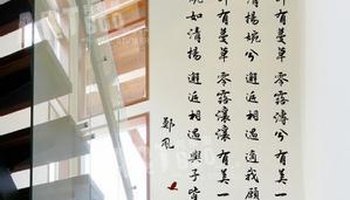 有蔓草 零露漙兮 有美一
清揚婉兮 邂逅相遇 適我願
有蔓草 零露瀼瀼 有美一
婉如清揚 邂逅相遇 與子皆
鄭風